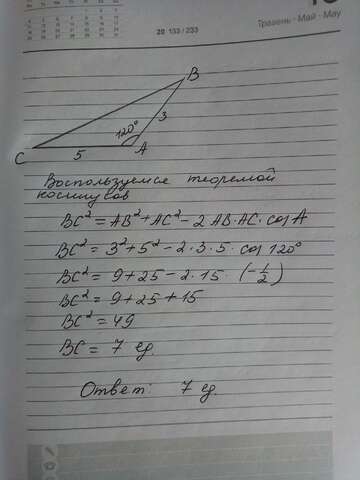 20 133/233
Травень · Май · May
B
120°
3
C
5
A
Воспользуемся теоремой
косинусов
BC² = AB² + AC² - 2 AB · AC · cos A
BC² = 3² + 5² - 2 · 3 · 5 · cos 120°
BC² = 9 + 25 - 2 · 15 · (-1/2)
BC² = 9 + 25 + 15
BC² = 49
BC = 7 ед.
Ответ: 7 ед.